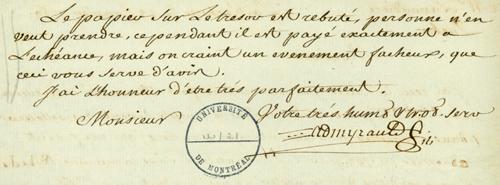 Le papier sur Le tresor est rebuté, personne n'en
veut prendre, cependant il est payé exactement a
Lecheance, mais on craint un evenement facheux, que
ceci vous serve d'avis.
J'ai L'honneur d'être trés parfaitement.
Monsieur Votre trés humb & trob. serv
admyrauld fils
UNIVERSITÉ
DE MONTRÉAL